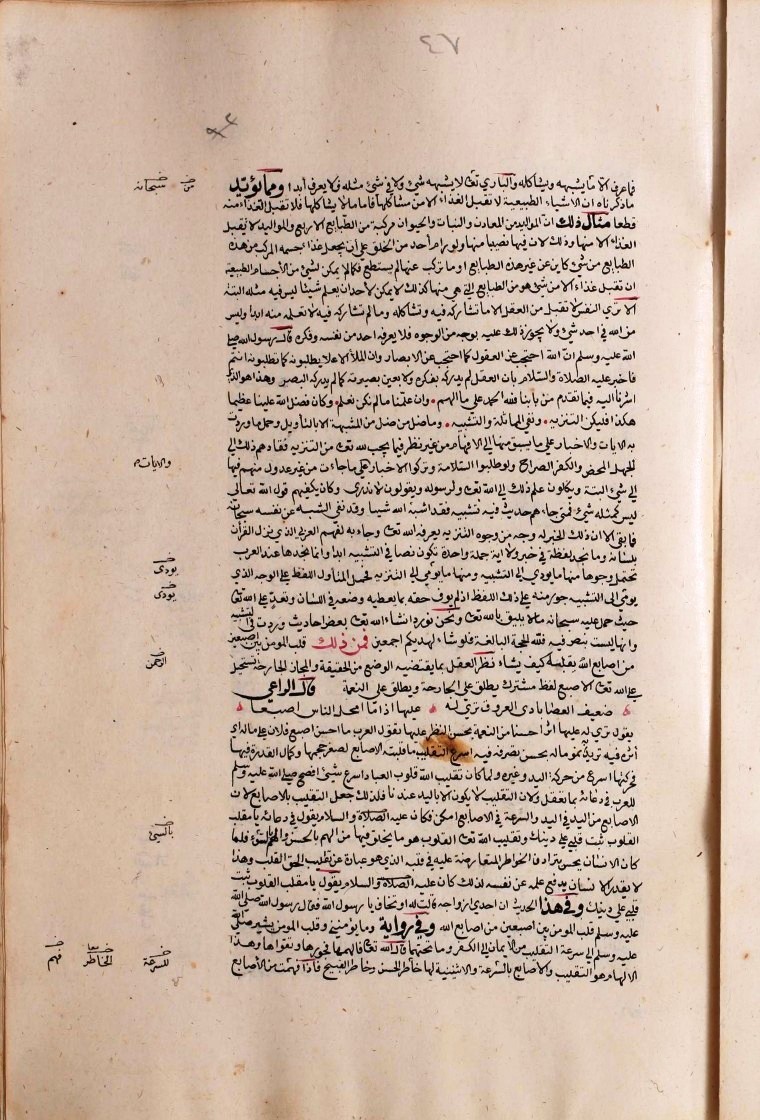 ٤٧
فما عرف الا ما يشبهه ويشاكله والباري تعالى لا يشبهه شيء ولا في شيء مثله فلا يعرف أبدا ومما يؤيد
ما ذكرناه ان الاشياء الطبيعية لا تقبل الغذاء الا من مشاكلها فاما ما لا يشاكلها فلا تقبل الغذاء منه
قطعا مثال ذلك ان المواليد من المعادن والنبات والحيوان مركبة من الطبايع الاربع والمواليد لا تقبل
الغذاء الا منها وذلك لان فيها نصيبا منها ولو رام أحد من الخلق على أن يجعل غذاء جسمه المركب من هذه
الطبايع من شيء كاين عن غير هذه الطبايع او ما تركب عنها لم يستطع فكما لا يمكن لشيء من الأجسام الطبيعية
ان تقبل غذاء الا من شيء هو من الطبايع التي هي منها كذلك لا يمكن لأحد ان يعلم شيئا ليس فيه مثله البتة
الا ترى النفس لا تقبل من العقل الا ما تشاركه فيه وتشاكله وما لم تشاركه فيه لا تعلمه منه ابدا وليس
من الله في احد شيء ولا يجوز ذلك عليه بوجه من الوجوه فلا يعرفه احد من نفسه وفكره قال رسول الله صلى
الله عليه وسلم ان الله احتجب عن العقول كما احتجب عن الابصار وان الملأ الاعلا يطلبونه كما تطلبونه انتم
فاخبر عليه الصلاة والسلام بأن العقل لم يدركه بفكره ولا بعين بصيرته كما لم يدركه البصر وهذا هو الذي
اشرنا اليه فيما تقدم من بابنا فلله الحمد على ما الهم وان علمنا ما لم نكن نعلم وكان فضل الله علينا عظيما
هكذا فليكن التنزيه ونفي المماثلة والتشبيه وما ضل من ضل من المشبهة الا بالتأويل وحمل ما وردت
به الايات والاخبار على ما يسبق منها الى الافهام من غير نظر فيما يجب لله تعالى من التنزيه فقادهم ذلك الى
الجهل المحض والكفر الصراح ولو طلبوا السلامة وتركوا الاخبار على ما جاءت من غير عدول منهم فيها
الى شيء البتة ويكلون علم ذلك الى الله تعالى ولرسوله ويقولون لا ندري وكان يكفيهم قول الله تعالى
ليس كمثله شيء فمتى جاءهم حديث فيه تشبيه فقد اشبه الله شيئا وقد نفى الشبه عن نفسه سبحانه
فما بقي الا ان ذلك الخبر له وجه من وجوه التنزيه يعرفه الله تعالى وجاء به لفهم العربي الذي نزل القرآن
بلسانه وما تجد لفظة في خبر ولا اية جملة واحدة تكون نصا في التشبيه ابدا وانما تجدها عند العرب
تحتمل وجوها منها ما يودي الى التشبيه ومنها ما يودي الى التنزيه فحمل المتاول اللفظ على الوجه الذي
يودي الى التشبيه جور منه على ذلك اللفظ اذ لم يوف حقه بما يعطيه وضعه في اللسان وتعد على الله تعالى
حيث حمل عليه سبحانه ما لا يليق بالله تعالى ونحن نورد انشاء الله تعالى بعض احاديث وردت في التشبيه
وانها ليست بنص فيه فلله الحجة البالغة فلو شاء لهديكم اجمعين فمن ذلك قلب المومن بين اصبعين
من اصابع الله يقلبه كيف يشاء نظر العقل بما يقتضيه الوضع من الحقيقة والمجاز الجارحة تستحيل
على الله تعالى الاصبع لفظ مشترك يطلق على الجارحة ويطلق على النعمة قال الراعي
ضعيف العصا بادي العروق ترى له عليها اذا ما امحل الناس اصبعا
يقول ترى له عليها اثرا حسنا من النعمة بحسن النظر عليها تقول العرب ما احسن اصبع فلان على ماله اي
أثره فيه تريد نمو ماله بحسن تصرفه فيه اسرع التقليب ما قلبته الاصابع لصغر حجمها وكمال القدرة فيها
فحركتها اسرع من حركة اليد وغيره ولما كان تقليب الله قلوب العباد اسرع شيء افصح صلى الله عليه وسلم
للعرب في دعائه بما تعقل ولان التقليب لا يكون الا باليد عندنا فلذلك جعل التقليب بالاصابع لان
الاصابع من اليد في اليد والسرعة في الاصابع امكن فكان عليه الصلاة والسلام يقول في دعائه يا مقلب
القلوب ثبت قلبي على دينك وتقليب الله تعالى القلوب هو ما يخلق فيها من الهم بالحسن والهم بالسوء فلما
كان الانسان يحس بترادف الخواطر المتعارضة عليه في قلبه الذي هو عبارة عن تقليب الحق القلب وهذا
لا يقدر الانسان يدفع علمه عن نفسه لذلك كان عليه الصلاة والسلام يقول يا مقلب القلوب ثبت
قلبي على دينك وفي هذا الحديث ان احدى ازواجه قالت له او تخاف يا رسول الله فقال رسول الله صلى الله
عليه وسلم قلب المومن بين اصبعين من اصابع الله وفي رواية وما يؤمنني وقلب المومن يشير صلى الله
عليه وسلم الى سرعة التقليب من الايمان الى الكفر وما تحتهما قال الله تعالى فالهمها فجورها وتقواها وهذا
الالهام هو التقليب والاصابع بالسرعة والاثنينية لها خاطر الحسن وخاطر القبيح فاذا فهمت من الأصابع
من سبحانه
والايات
يودي
يودي
الرحمن
بالسيئ
للسرعة
الخاطر
فهم